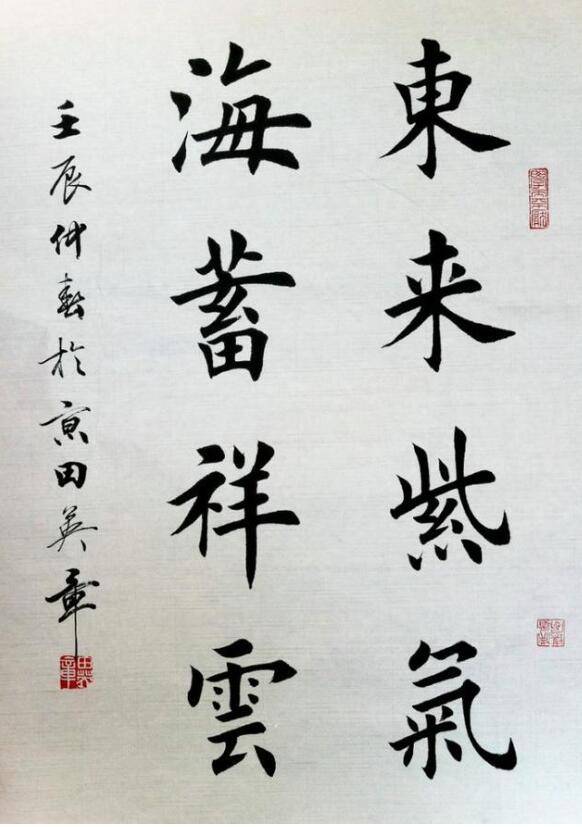 東来紫氣
海蓄祥雲
壬辰仲春於京田英章
田英章